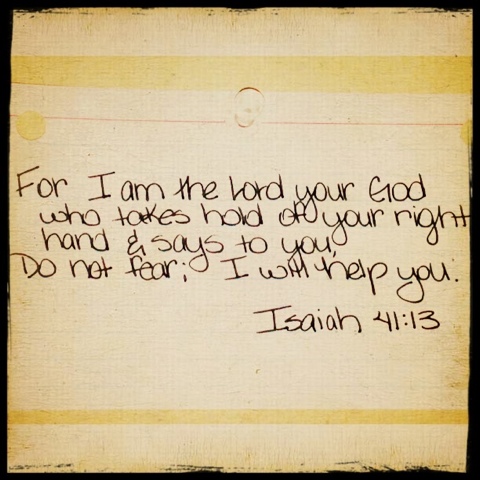 For I am the Lord your God
who takes hold of your right
hand & says to you,
Do not fear; I will help you.
Isaiah 41:13